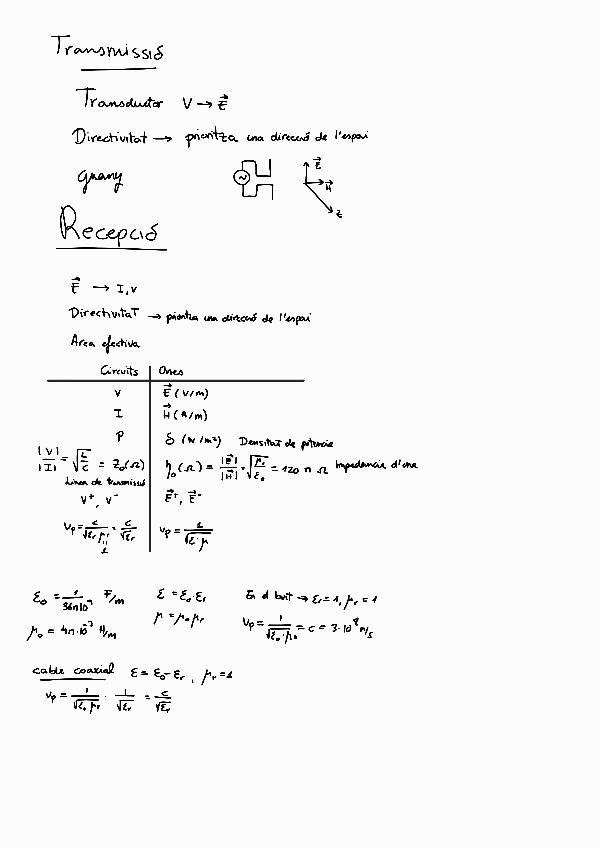 Transmissió
Transductor V → E⃗
Directivitat → prioritza una direcció de l'espai
guany
E⃗
H⃗
z
Recepció
E⃗ → I, V
Directivitat → prioritza una direcció de l'espai
Area efectiva
Circuits | Ones
V | E⃗ (V/m)
I | H⃗ (A/m)
P | δ (W/m²) Densitat de potencia
|V|/|I| = √(L/C) = Z₀(Ω) | η₀(Ω) = |E⃗|/|H⃗| = √(μ₀/ε₀) = 120 π Ω Impedancia d'ona
Linea de transmissió
V⁺, V⁻ | E⃗⁺, E⃗⁻
Vp = c/√(εr μr) = c/√εr | Vp = 1/√(ε·μ)
1
ε₀ = 1/(36π10⁻⁹) F/m ε = ε₀·εr En el buit → εr = 1, μr = 1
μ₀ = 4π·10⁻⁷ H/m μ = μ₀μr Vp = 1/√(ε₀·μ₀) = c = 3·10⁸ m/s
cable coaxial ε = ε₀-εr, μr = 1
Vp = 1/√(ε₀ μr) · 1/√εr = c/√εr